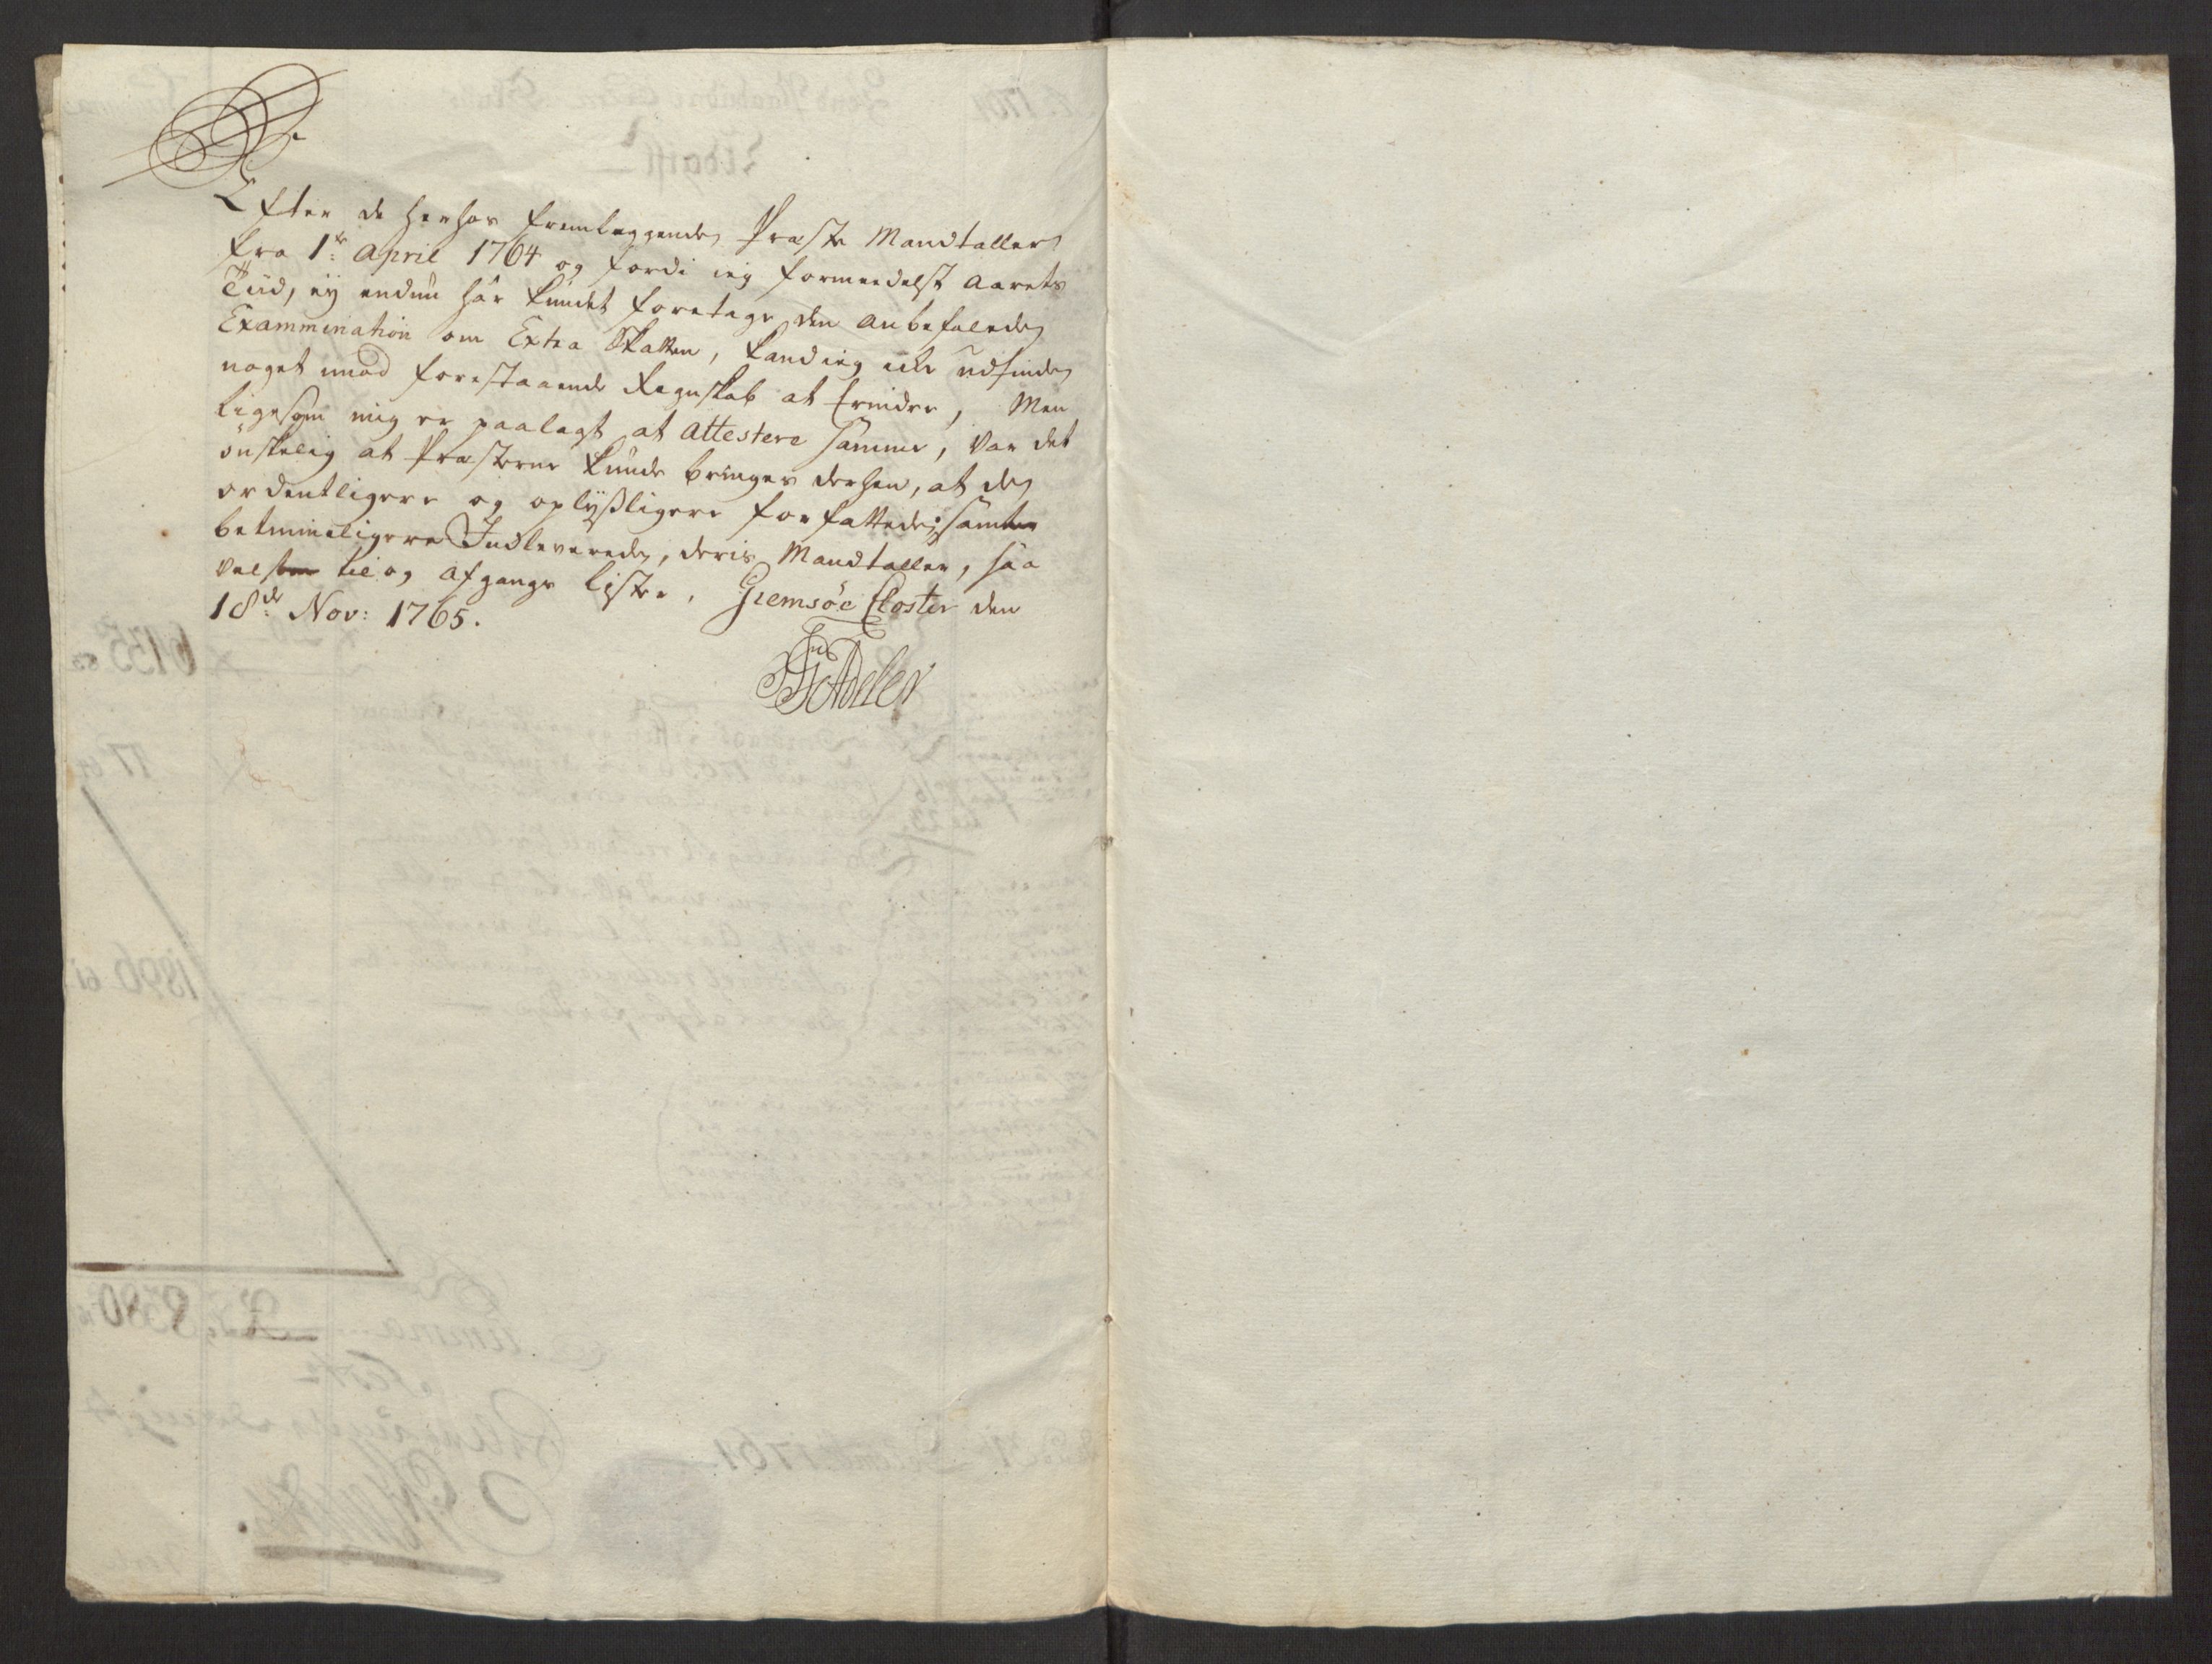 Efter de herhos fremlæggende Præste Mandtaller
fra 1te April 1764 og fordi ieg formeedelst Aarets
Tiid, ey endnu har kundet foretage den anbefalede
Exammination om Extra Skatten, kand ieg icke udfinde
noget imod forestaaende Regnskab at Erindre, Men
ligesom mig er paalagt at Attestere samme, var det
ønskelig at Præsterne kunde bringes derhen, at de
ordentligere og oplyßligere forfattede, samt
betimmeligere Indleverede, deris Mandtaller, saa
vel som til og Afgangs Lister. Giemsøe Closter den
18de Nov: 1765.
Adeler